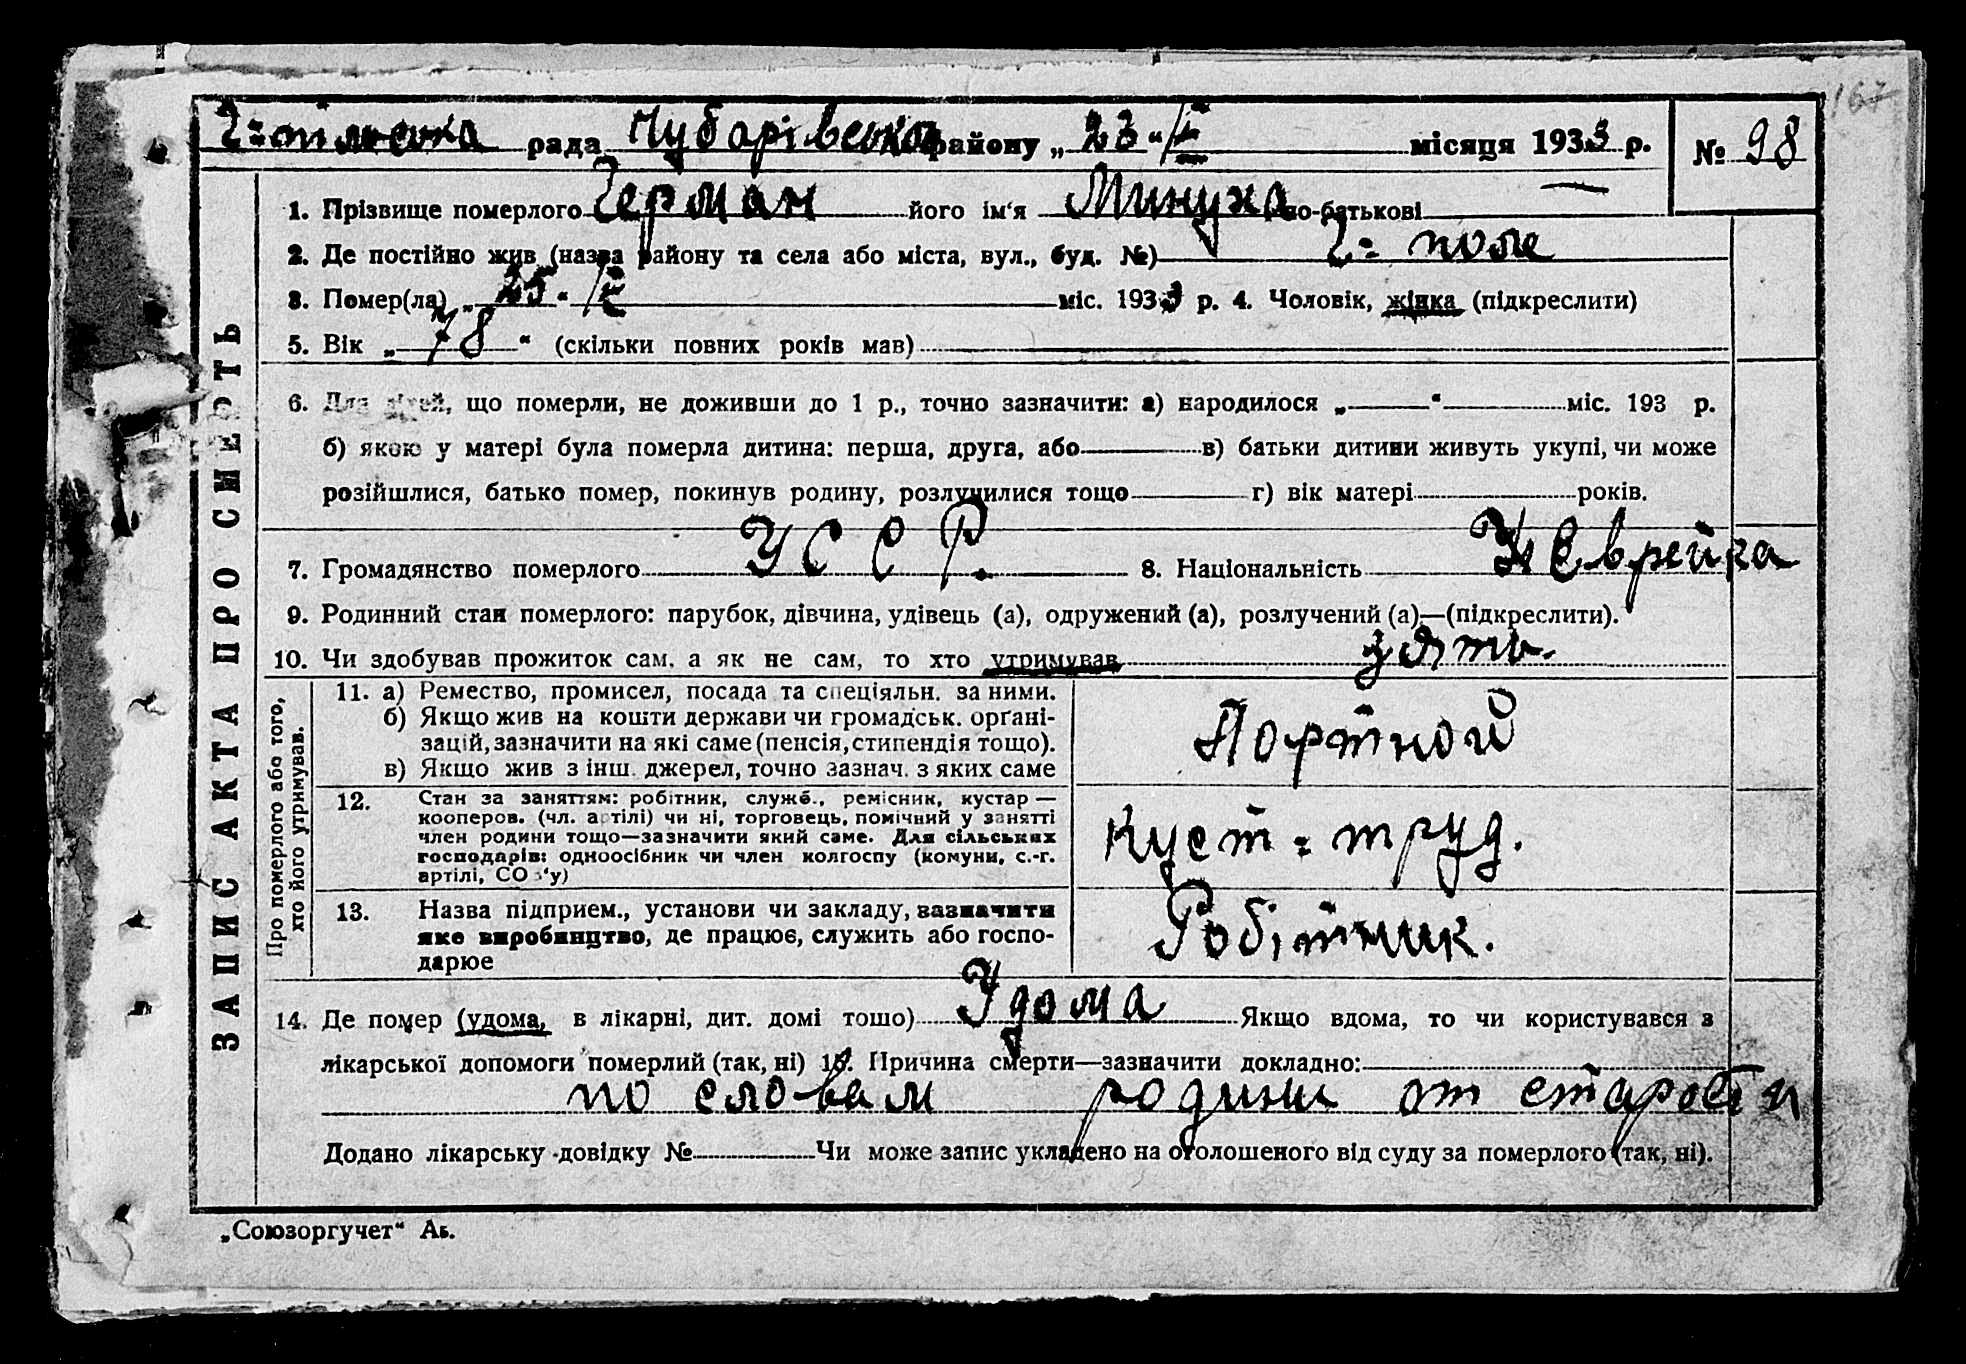 167
Г=пільська рада Чубарівського району „ 23 “ / V місяця 1933 р. № 98
1. Прізвище померлого Герман його ім'я Минуха по-батькові —
2. Де постійно жив (назва району та села або міста, вул., буд. №) Г=поле
3. Помер(ла) „ 25 “ / V міс. 1933 р. 4. Чоловік, жінка (підкреслити)
5. Вік „ 78 “ (скільки повних років мав)
6. Для дітей, що померли, не доживши до 1 р., точно зазначити: а) народилося „ “ міс. 193 р.
б) якою у матері була померла дитина: перша, друга, або в) батьки дитини живуть укупі, чи може
розійшлися, батько помер, покинув родину, розлучилися тощо г) вік матері років.
7. Громадянство померлого УССР. 8. Національність Єврейка
9. Родинний стан померлого: парубок, дівчина, удівець (а), одружений (а), розлучений (а)—(підкреслити).
10. Чи здобував прожиток сам, а як не сам, то хто утримував зять.
11. а) Ремество, промисел, посада та спеціяльн. за ними.
б) Якщо жив на кошти держави чи громадськ. органі-
зацій, зазначити на які саме (пенсія, стипендія тощо).
в) Якщо жив з інш. джерел, точно зазнач. з яких саме
Портной
12. Стан за заняттям: робітник, службу., ремісник, кустар —
кооперов. (чл. артілі) чи ні, торговець, помічний у занятті
член родини тощо—зазначити який саме. Для сільських
господарів: одноосібник чи член колгоспу (комуни, с.-г.
артілі, СОЗ'у)
Куст=труд.
13. Назва підприєм., установи чи закладу, зазначити
яке виробництво, де працює, служить або госпо-
дарює
Робітник.
14. Де помер (удома, в лікарні, дит. домі тощо) Удома Якщо вдома, то чи користувався з
лікарської допомоги померлий (так, ні) 15. Причина смерти—зазначити докладно:
по словам родини от старости
Додано лікарську довідку № Чи може запис укладено на оголошеного від суду за померлого (так, ні).
ЗАПИС АКТА ПРО СМЕРТЬ
Про померлого або того,
хто його утримував.
„Союзоргучет“ Аъ.